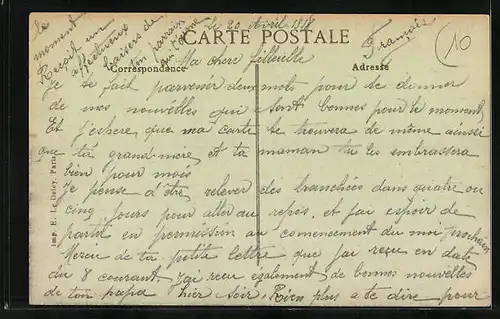 Le 20 Avril 1918
CARTE POSTALE
Correspondance
Adresse
François
10
Ma chere filleulle
Je te fait parvenir deux mots pour te donner
de mes nouvelles qui sont bonnes pour le moment
Et j'espere que ma carte te trouvera de même ainsi
que ta grand mère et ta maman tu les embrassera
bien pour mois
Je pense d'être relever des tranchées dans quatre ou
cinq jours pour aller au repos et j'ai espoir de
partir en permission au comencement du moi prochain
Merci de ta petite lettre que j'ai reçu en date
du 8 courant. j'ai reçu également de bonnes nouvelles
de ton papa hier soir. Rien plus a te dire pour
le
moment
Reçoit un
affectueux
baisers de
ton parrain
Imp. E. Le Deley, Paris